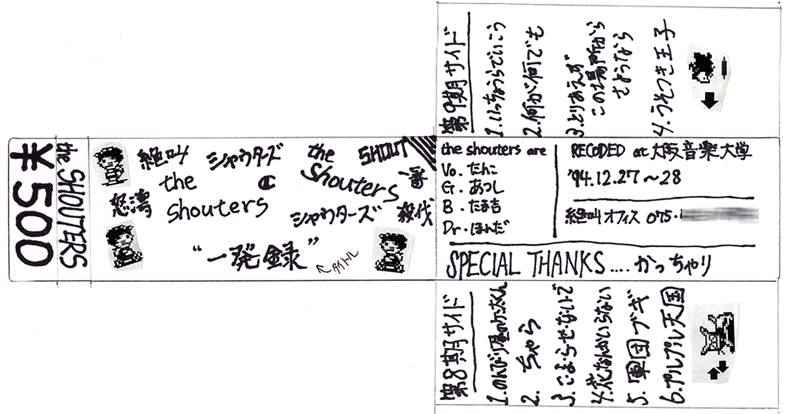 ¥500
the SHOUTERS
絶叫
シャウターズ
the
SHOUT
the
shouters
C
Shouters
一番
怒涛
シャウターズ
殺伐
"一発録"
タイトル
第9期サイド
1.いっちょうらでいこう
2.何が何でも
3.とりあえず
この場所から
さようなら
4.うそつき王子
the shouters are
Vo.たんこ
G.あつし
B.たま吉
Dr.ほんだ
RECODED at 大阪音楽大学
'94.12.27〜28
絶叫オフィス 075・
SPECIAL THANKS....かっちゃり
第8期サイド
1.のんびり屋のケンタくん
2.ちゃら
3.こまらせないで
4.花なんかいらない
5.軍団ブギ
6.プルプル天国